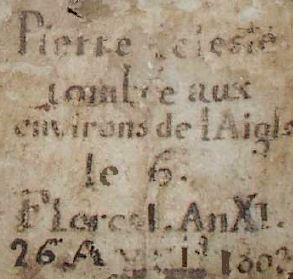 Pierre celeste
tombée aux
environs de l'Aigle
le 6.
Floreal. An XI.
26 A 1803